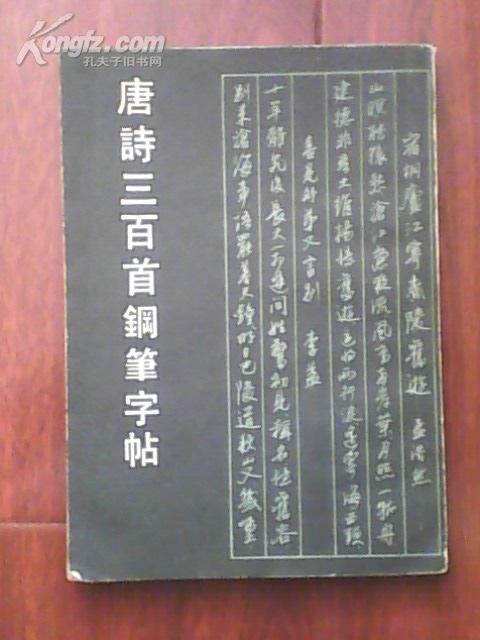 Kongfz.com
孔夫子旧书网
唐詩三百首鋼筆字帖
宿桐廬江寄廣陵舊遊 孟浩然
山暝聽猿愁滄江急夜流風鳴兩岸葉月照一孤舟
建德非吾土維揚憶舊遊還將兩行淚遙寄海西頭
喜見外弟又言別 李益
十年離亂後長大一相逢問姓驚初見稱名憶舊容
別來滄海事語罷暮天鐘明日巴陵道秋山又幾重